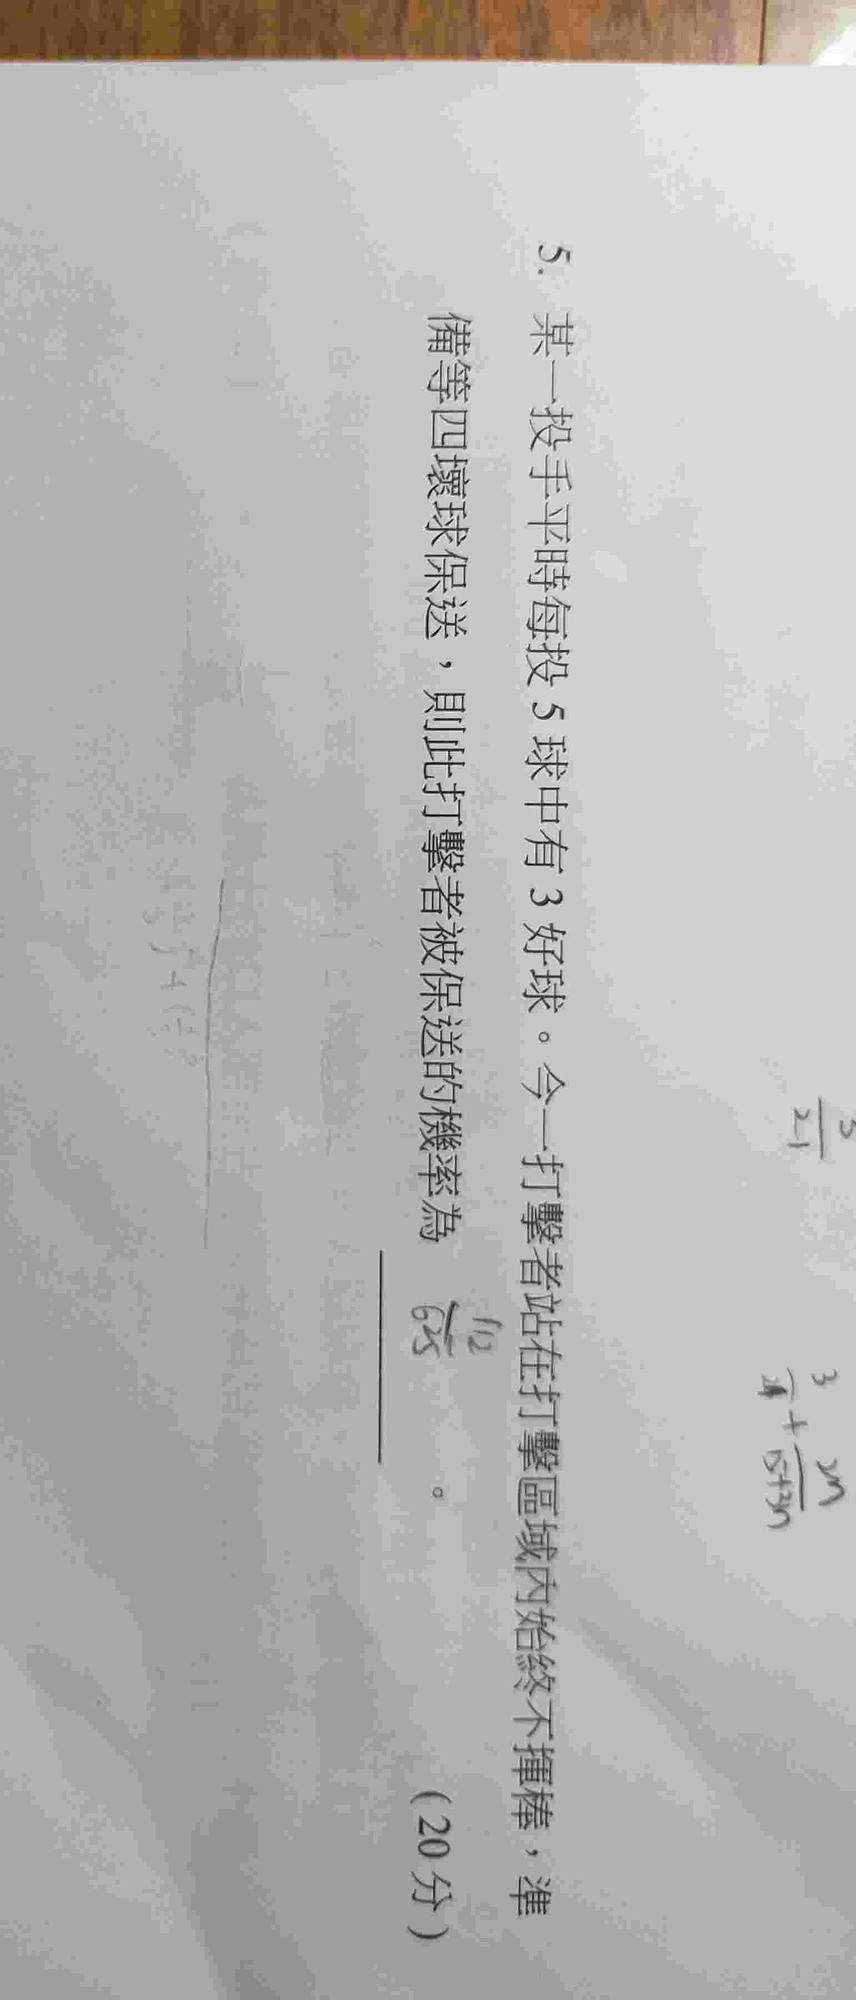 5. 某一投手平時每投 5 球中有 3 好球。今一打擊者站在打擊區域內始終不揮棒，準
備等四壞球保送，則此打擊者被保送的機率為 112/625 。 (20 分)